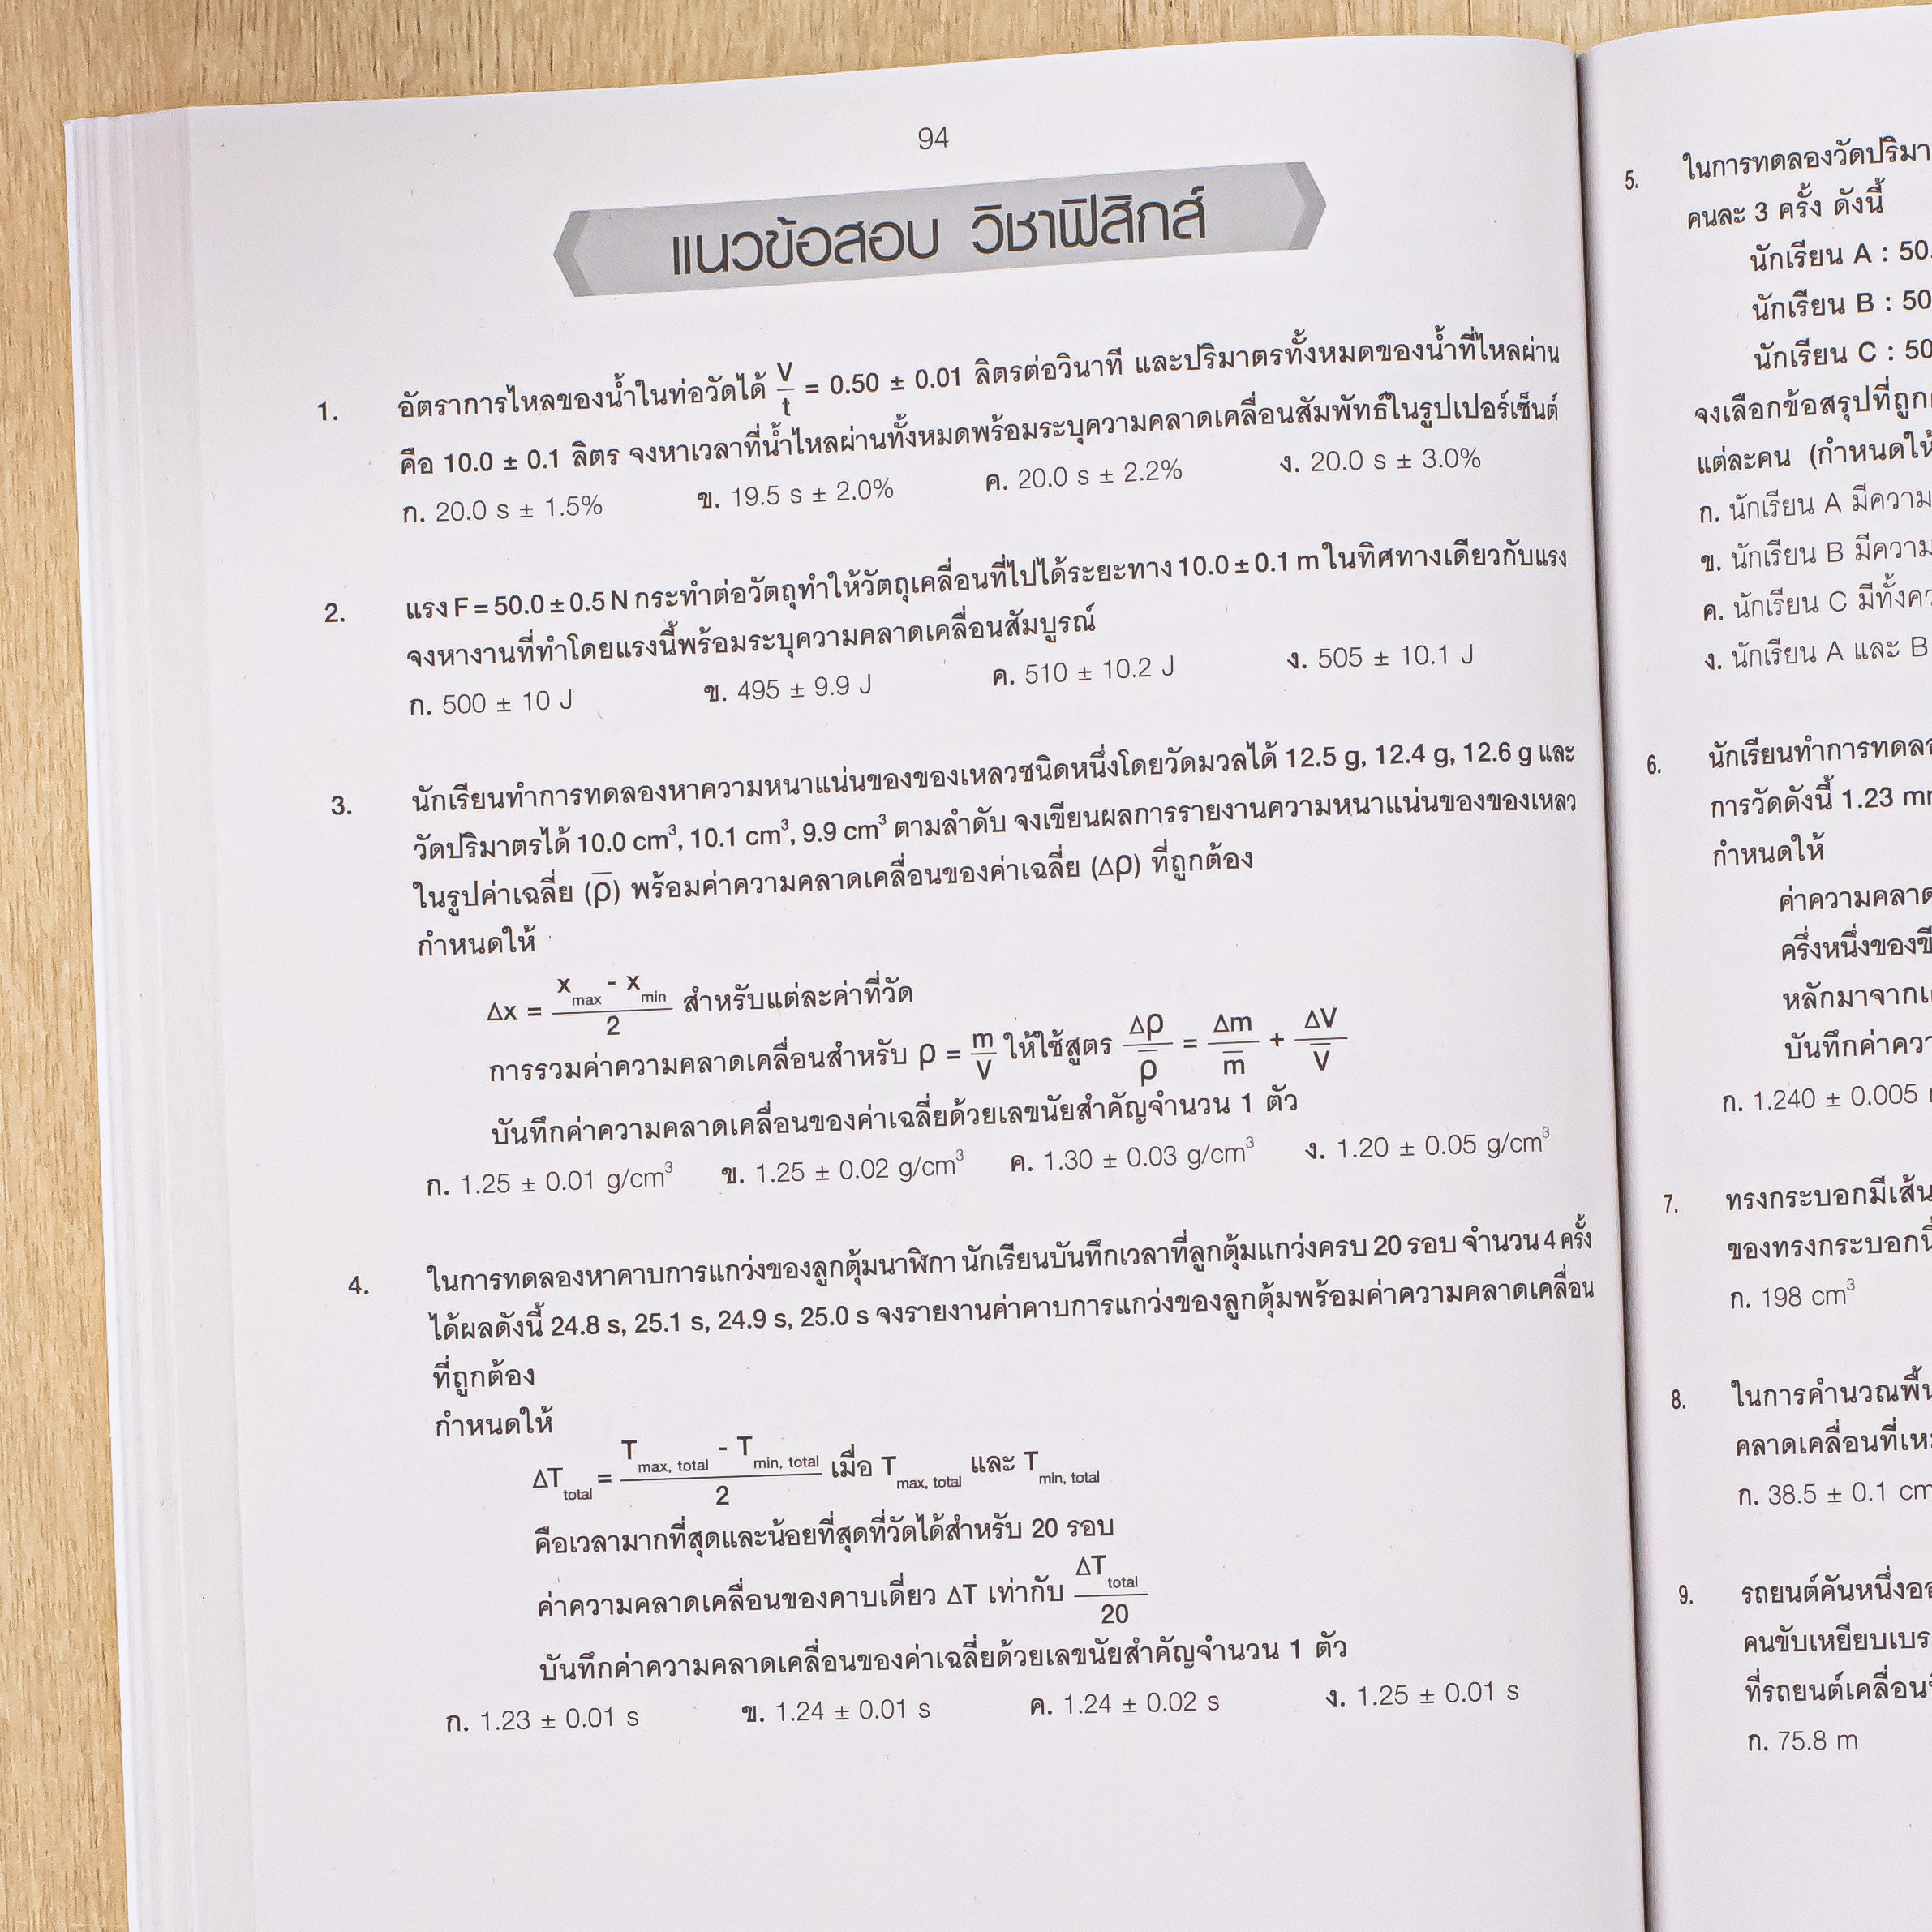 94
แนวข้อสอบ วิชาฟิสิกส์
1. อัตราการไหลของน้ำในท่อวัดได้ V/t = 0.50 ± 0.01 ลิตรต่อวินาที และปริมาตรทั้งหมดของน้ำที่ไหลผ่าน
คือ 10.0 ± 0.1 ลิตร จงหาเวลาที่น้ำไหลผ่านทั้งหมดพร้อมระบุความคลาดเคลื่อนสัมพัทธ์ในรูปเปอร์เซ็นต์
ก. 20.0 s ± 1.5% ข. 19.5 s ± 2.0% ค. 20.0 s ± 2.2% ง. 20.0 s ± 3.0%
2. แรง F = 50.0 ± 0.5 N กระทำต่อวัตถุทำให้วัตถุเคลื่อนที่ไปได้ระยะทาง 10.0 ± 0.1 m ในทิศทางเดียวกับแรง
จงหางานที่ทำโดยแรงนี้พร้อมระบุความคลาดเคลื่อนสัมบูรณ์
ก. 500 ± 10 J ข. 495 ± 9.9 J ค. 510 ± 10.2 J ง. 505 ± 10.1 J
3. นักเรียนทำการทดลองหาความหนาแน่นของของเหลวชนิดหนึ่งโดยวัดมวลได้ 12.5 g, 12.4 g, 12.6 g และ
วัดปริมาตรได้ 10.0 cm³, 10.1 cm³, 9.9 cm³ ตามลำดับ จงเขียนผลการรายงานความหนาแน่นของของเหลว
ในรูปค่าเฉลี่ย (ρ̅) พร้อมค่าความคลาดเคลื่อนของค่าเฉลี่ย (Δρ) ที่ถูกต้อง
กำหนดให้
Δx = (x_max - x_min)/2 สำหรับแต่ละค่าที่วัด
การรวมค่าความคลาดเคลื่อนสำหรับ ρ = m/V ให้ใช้สูตร Δρ/ρ̅ = Δm/m̅ + ΔV/V̅
บันทึกค่าความคลาดเคลื่อนของค่าเฉลี่ยด้วยเลขนัยสำคัญจำนวน 1 ตัว
ก. 1.25 ± 0.01 g/cm³ ข. 1.25 ± 0.02 g/cm³ ค. 1.30 ± 0.03 g/cm³ ง. 1.20 ± 0.05 g/cm³
4. ในการทดลองหาคาบการแกว่งของลูกตุ้มนาฬิกา นักเรียนบันทึกเวลาที่ลูกตุ้มแกว่งครบ 20 รอบ จำนวน 4 ครั้ง
ได้ผลดังนี้ 24.8 s, 25.1 s, 24.9 s, 25.0 s จงรายงานค่าคาบการแกว่งของลูกตุ้มพร้อมค่าความคลาดเคลื่อน
ที่ถูกต้อง
กำหนดให้
ΔT_total = (T_max, total - T_min, total)/2 เมื่อ T_max, total และ T_min, total
คือเวลามากที่สุดและน้อยที่สุดที่วัดได้สำหรับ 20 รอบ
ค่าความคลาดเคลื่อนของคาบเดี่ยว ΔT เท่ากับ ΔT_total/20
บันทึกค่าความคลาดเคลื่อนของค่าเฉลี่ยด้วยเลขนัยสำคัญจำนวน 1 ตัว
ก. 1.23 ± 0.01 s ข. 1.24 ± 0.01 s ค. 1.24 ± 0.02 s ง. 1.25 ± 0.01 s
5. ในการทดลองวัดปริมา
คนละ 3 ครั้ง ดังนี้
นักเรียน A : 50.
นักเรียน B : 50
นักเรียน C : 50
จงเลือกข้อสรุปที่ถูก
แต่ละคน (กำหนดให้
ก. นักเรียน A มีความ
ข. นักเรียน B มีความ
ค. นักเรียน C มีทั้งคว
ง. นักเรียน A และ B
6. นักเรียนทำการทดล
การวัดดังนี้ 1.23 m
กำหนดให้
ค่าความคลาด
ครึ่งหนึ่งของขี
หลักมาจาก
บันทึกค่าควา
ก. 1.240 ± 0.005
7. ทรงกระบอกมีเส้น
ของทรงกระบอกนี้
ก. 198 cm³
8. ในการคำนวณพื้น
คลาดเคลื่อนที่เห
ก. 38.5 ± 0.1 cm
9. รถยนต์คันหนึ่งออ
คนขับเหยียบเบร
ที่รถยนต์เคลื่อน
ก. 75.8 m